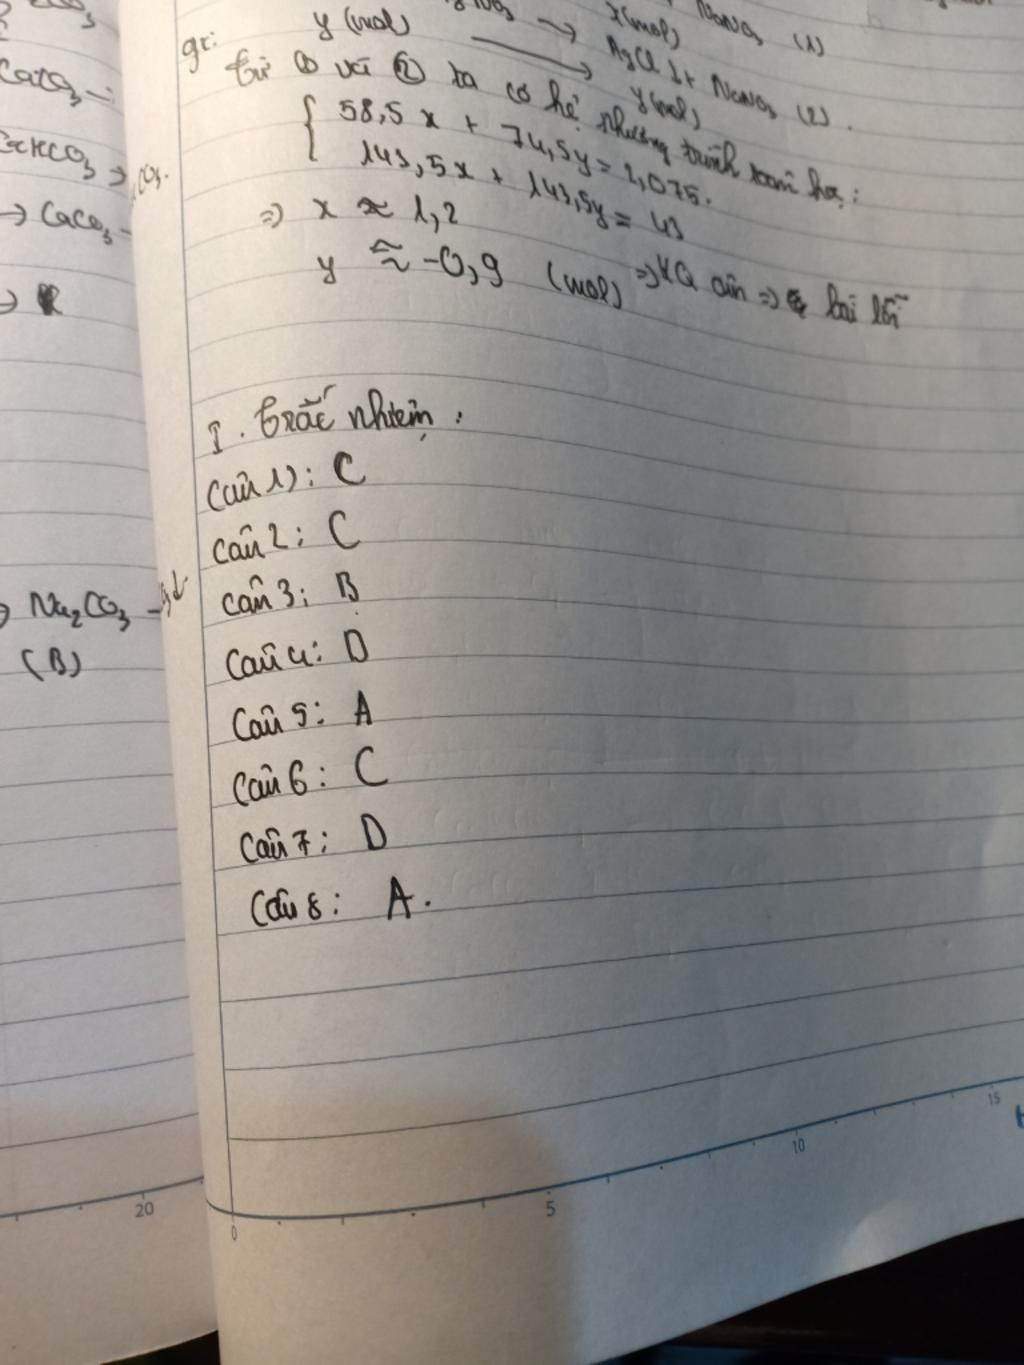 CaCO₃ –
CaHCO₃ →
→ CaCO₃ –
→ Na₂CO₃ –
(B)
20
NaNO₃ (1)
gt: y (mol) → x (mol)
AgCl ↓ + NaNO₃ (2).
y (mol)
Từ ① và ② ta có hệ phương trình toán học:
58,5x + 74,5y = 2,075.
143,5x + 143,5y = 43
⇒ x ≈ 1,2
y ≈ -0,9 (mol) ⇒ KQ âm ⇒ bài lỗi
I. Trắc nhiệm:
Câu 1): C
Câu 2: C
Câu 3: B
Câu 4: D
Câu 5: A
Câu 6: C
Câu 7: D
Câu 8: A.
0 5 10 15